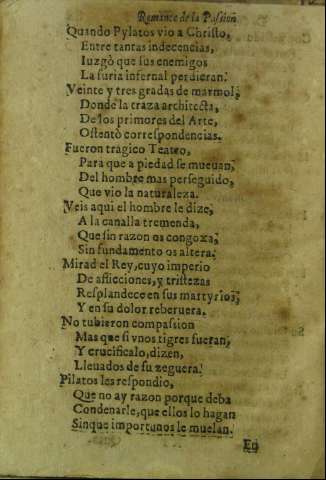 Romance de la Pasion
Quando Pylatos vio a Christo,
Entre tantas indecencias,
Iuzgò que sus enemigos
La furia infernal perdieran.
Veinte y tres gradas de marmol,
Donde la traza architecta,
De los primores del Arte,
Ostentò correspondencias.
Fueron tragico Teatro,
Para que a piedad se mueuan,
Del hombre mas perseguido,
Que vio la naturaleza.
Veis aqui el hombre le dize,
A la canalla tremenda,
Que sin razon os congoxa,
Sin fundamento os altera.
Mirad el Rey, cuyo imperio
De aflicciones, y tristezas
Resplandece en sus martyrios,
Y en su dolor reberuera.
No tubieron compassion
Mas que si vnos tigres fueran,
Y crucificalo, dizen,
Lleuados de su zeguera.
Pilatos les respondio,
Que no ay razon porque deba
Condenarle, que ellos lo hagan
Sinque importunos le muelan.
En